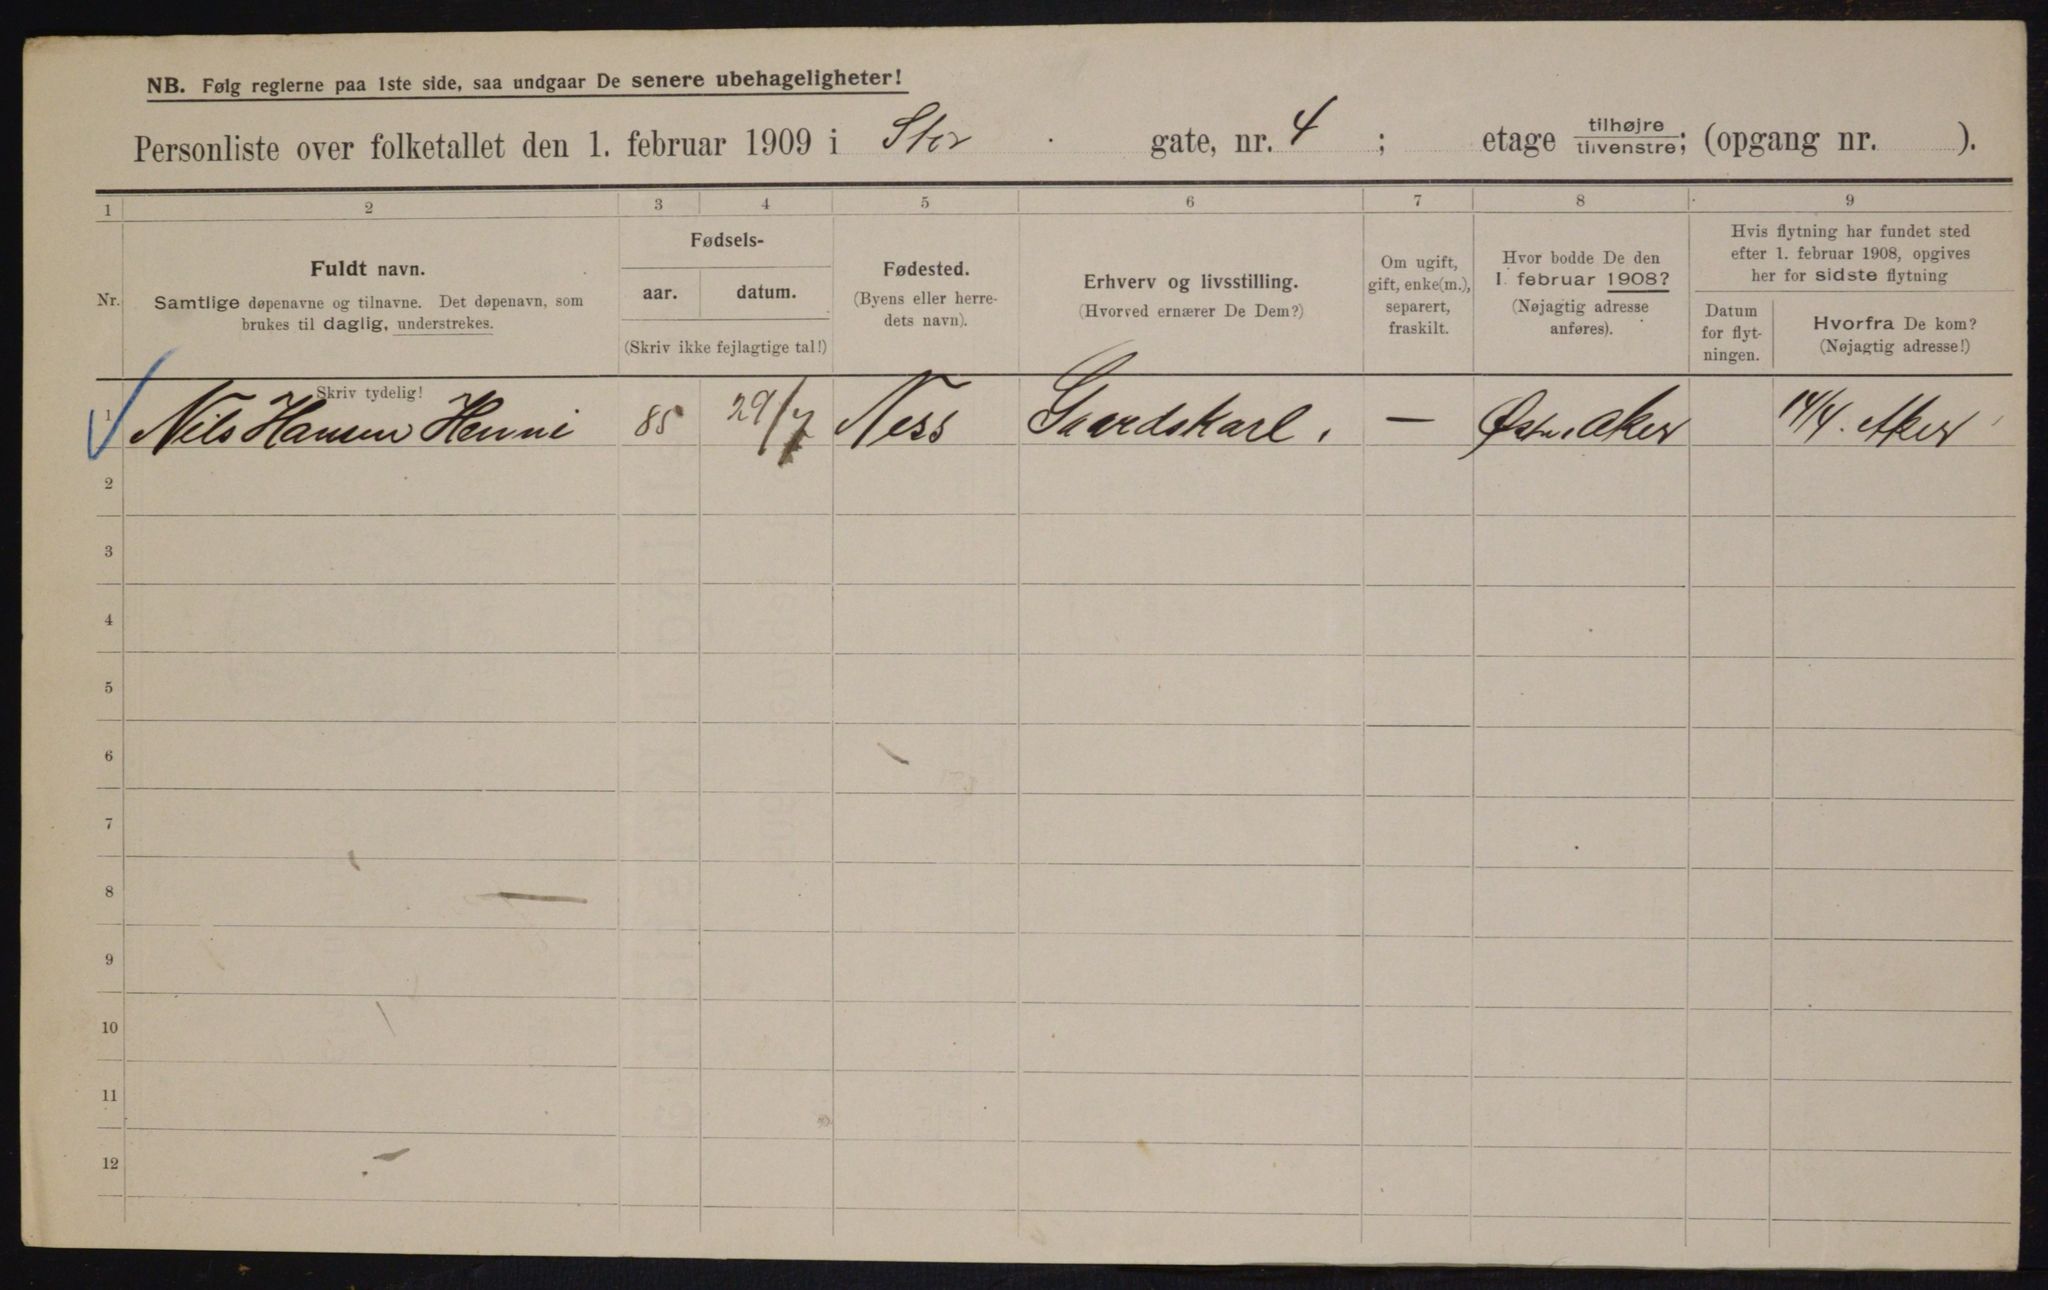 NB. Følg reglerne paa 1ste side, saa undgaar De senere ubehageligheter!
Personliste over folketallet den 1. februar 1909 i Stor gate, nr. 4 ; etage tilhøjre tilvenstre; (opgang nr. ).
1 2 3 4 5 6 7 8 9
Nr.
Fuldt navn.
Samtlige døpenavne og tilnavne. Det døpenavn, som
brukes til daglig, understrekes.
Skriv tydelig!
Fødsels-
aar. datum.
(Skriv ikke fejlagtige tal!)
Fødested.
(Byens eller herre-
dets navn).
Erhverv og livsstilling.
(Hvorved ernærer De Dem?)
Om ugift,
gift, enke(m.),
separert,
fraskilt.
Hvor bodde De den
1. februar 1908?
(Nøjagtig adresse
anføres).
Hvis flytning har fundet sted
efter 1. februar 1908, opgives
her for sidste flytning
Datum
for flyt-
ningen.
Hvorfra De kom?
(Nøjagtig adresse!)
1 Nils Hansen Henni 85 29/7 Ness Gaardskarl. — Østre Aker 14/4. Aker
2
3
4
5
6
7
8
9
10
11
12